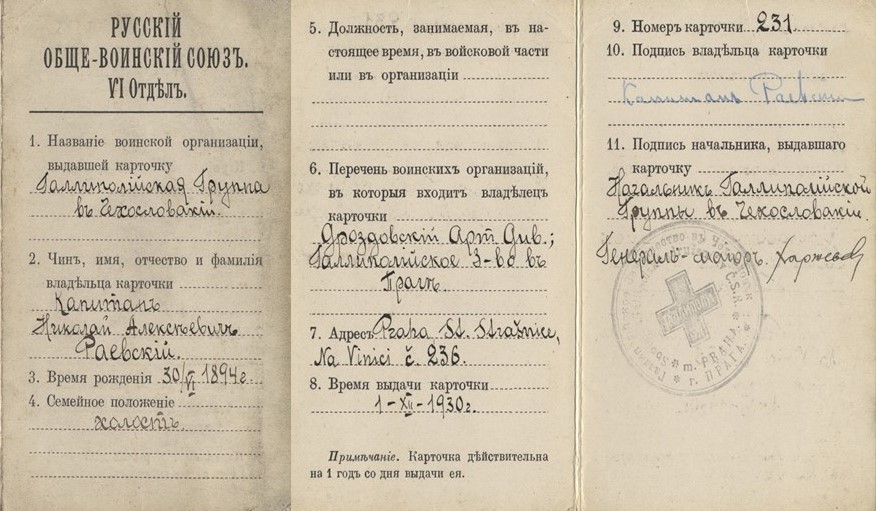 РУССКІЙ
ОБЩЕ-ВОИНСКІЙ СОЮЗЪ.
VI Отдѣлъ.
1. Названіе воинской организаціи,
выдавшей карточку
Галлиполійская Группа
въ Чехословакіи.
2. Чинъ, имя, отчество и фамилія
владѣльца карточки
Капитанъ
Николай Алексѣевичъ
Раевскій.
3. Время рожденія 30/VI 1894 г.
4. Семейное положеніе
холостъ.
5. Должность, занимаемая, въ на-
стоящее время, въ войсковой части
или въ организаціи
6. Перечень воинскихъ организацій,
въ которыя входитъ владѣлец
карточки
Дроздовскій Арт. Див.;
Галлиполійское З-во въ
Прагѣ.
7. Адресъ Praha St. Strašnice,
Na Vinici č. 236.
8. Время выдачи карточки
1-XII-1930 г.
Примѣчаніе. Карточка дѣйствительна
на 1 годъ со дня выдачи ея.
9. Номеръ карточки 231.
10. Подпись владѣльца карточки
Капитанъ Раевскій
11. Подпись начальника, выдавшаго
карточку
Начальникъ Галлиполійской
Группы въ Чехословакіи.
Генералъ-маіоръ. Харжевскій
Č.S.R.
m. PRAHA.
г. ПРАГА.